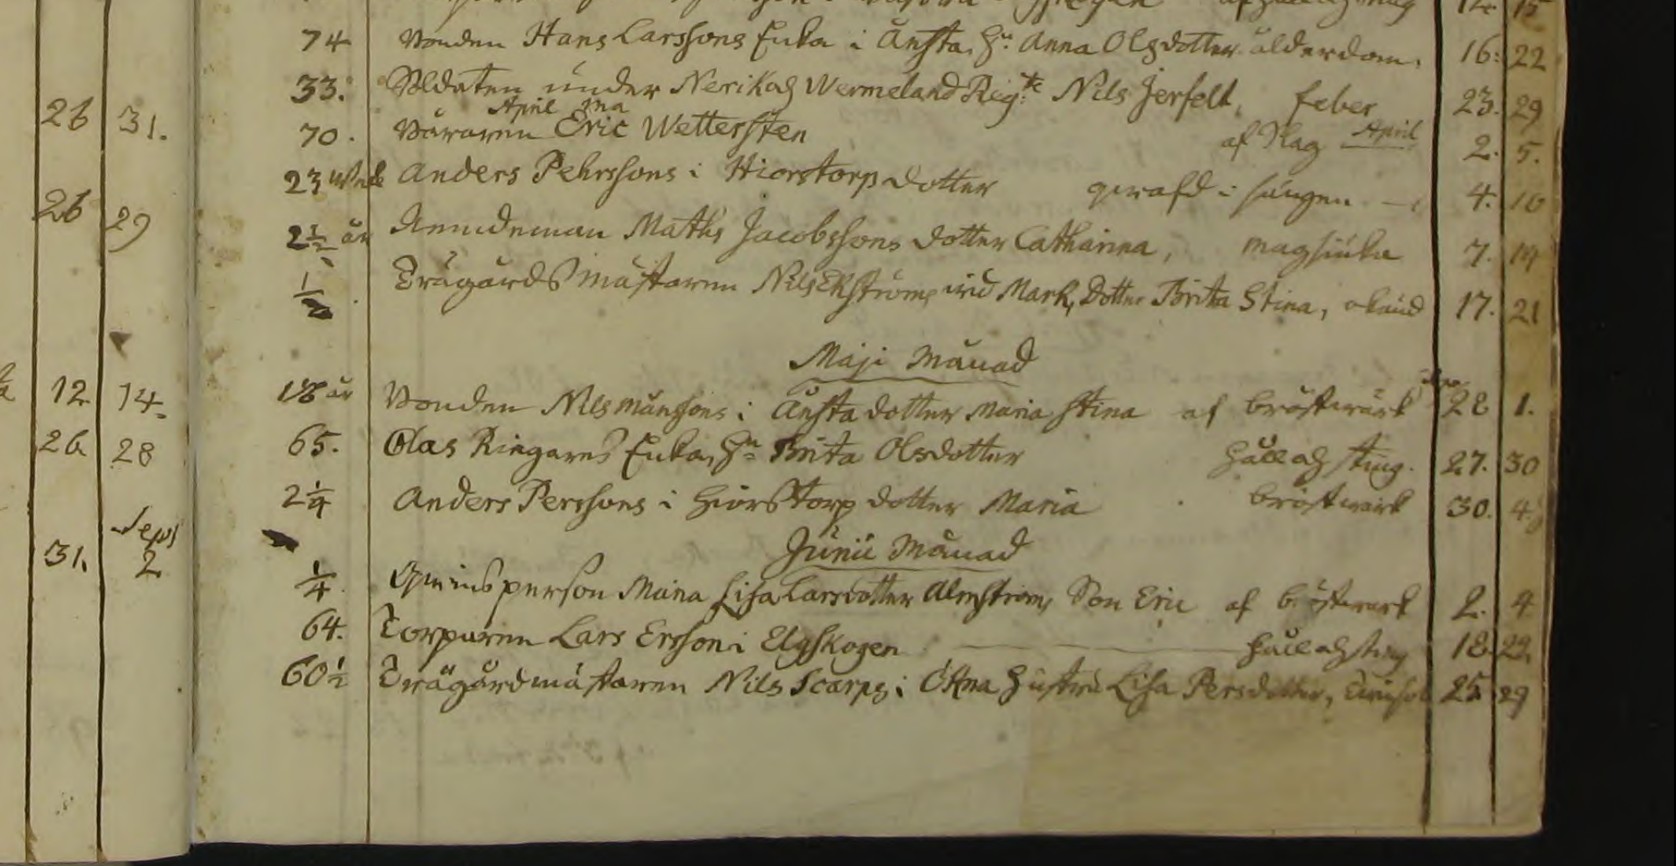 12. 15
74 Bonden Hans Larssons Enka i Ånsta, Hu Anna Olsdotter ålderdom. 16: 22
33. Soldaten under Nerikes Wermeland Regte Nils Jerfelt, feber 23. 29
April
26 31. 70. Eric Wettersten af Slag April 2. 5.
23 Anders Pehrssons i Hiorstorp dotter qvafd i sängen 4. 10
26 29 2½ år Nemdeman Maths Jacobssons dotter Catharina, magsiuka 7. 14
½ Trägårdsmästaren Nils Ekströms Mark, Dotter Brita Stina, okänd 17. 21
Maji Månad
12. 14. 18 år Bonden Nils Månssons i Ånsta dotter Maria Stina af bröstwärk 28 1.
26 28 65. Olas Ringares Enka, Hu Brita Olsdotter håll och sting. 27. 30
2¼ Anders Perssons i Hiorstorp dotter Maria bröstwärk 30. 4
Sept
31. 2 Junii Månad
¼ Qvinsperson Maria Lisa Larsdotter Almströms Son Eric af bröstwärk 2. 4
64. Torparen Lars Ersson i Elgskogen håll och sting 18. 22.
60½ Trägårdmästaren Nils Scarps i Hustru Lisa Persdotter, 25. 29